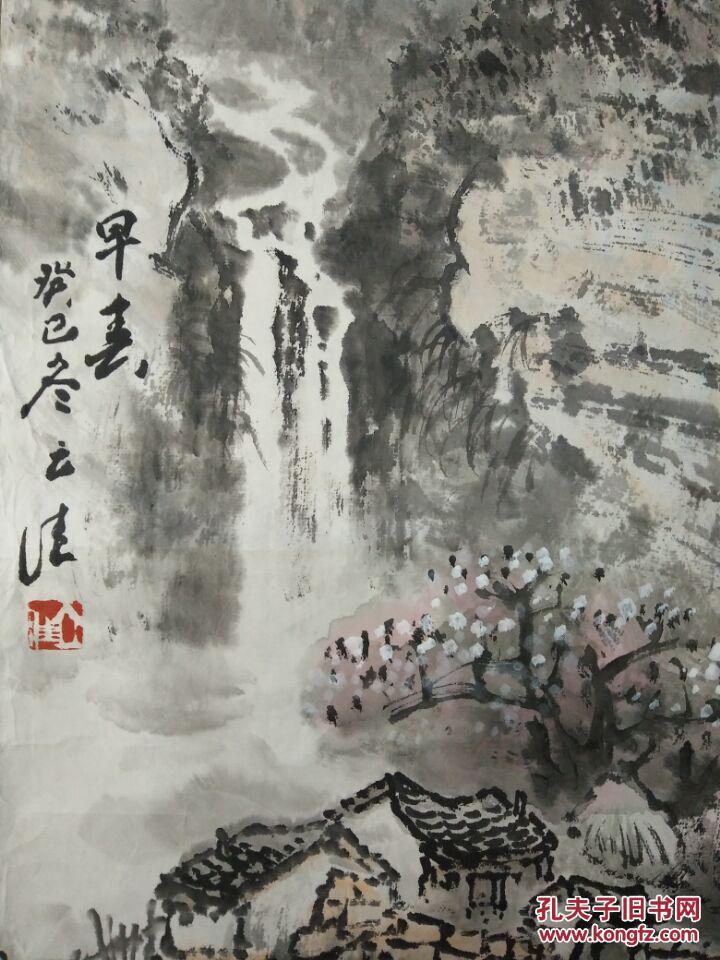 早春
癸巳冬云佳
孔夫子旧书网
www.kongfz.com